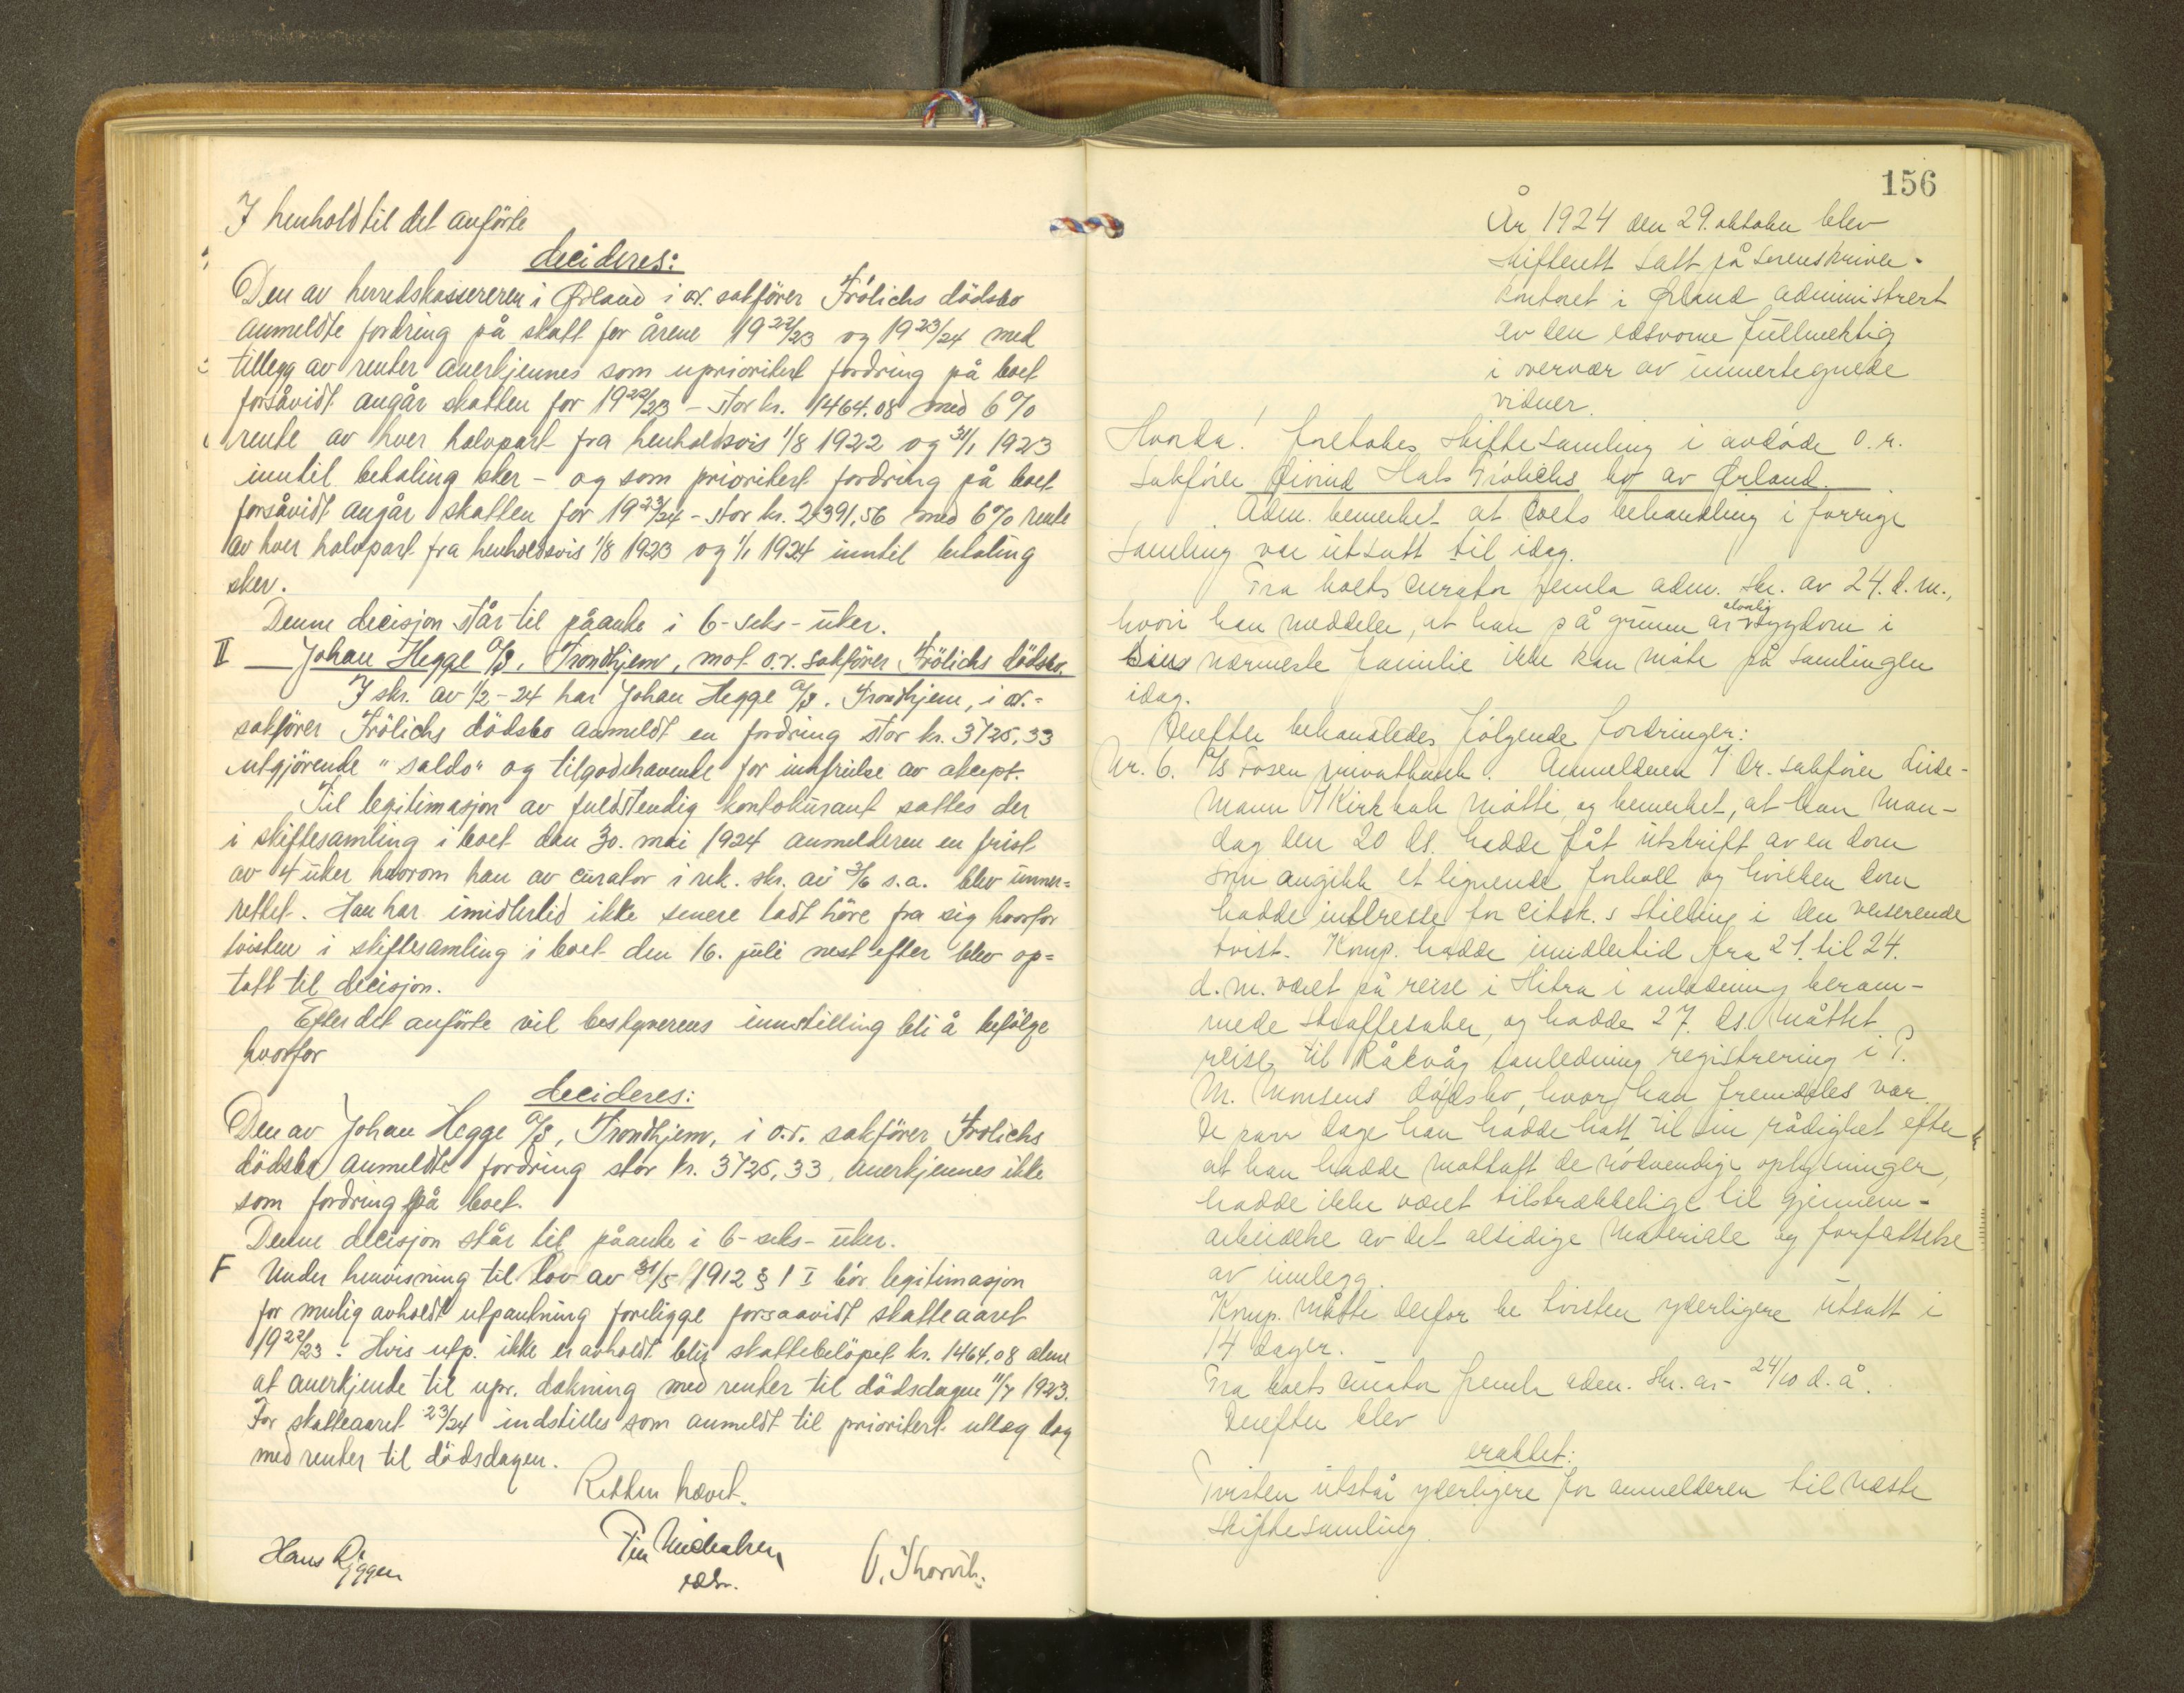 I henhold til det anförte
decideres:
Den av herredskassereren i Ørland i o.r. sakförer Frölichs dödsbo
anmeldte fordring på skatt for årene 1922/23 og 1923/24 med
tillegg av renter anerkjennes som uprioritert fordring på boet
forsåvidt angår skatten for 1922/23 - stor kr. 1464.08 med 6%
rente av hver halvpart fra henholdsvis 1/8 1922 og 31/1 1923
inntil betaling sker - og som prioritert fordring på boet
forsåvidt angår skatten for 1923/24 - stor kr. 2391,56 med 6% rente
av hver halvpart fra henholdsvis 1/8 1923 og 1/1 1924 inntil betaling
sker.
Denne decisjon står til påanke i 6-seks-uker.
II Johan Hegge A/S, Trondhjem, mot o.r. sakförer Frölichs dödsbo.
I skr. av 1/2-24 har Johan Hegge A/S. Trondhjem, i o.r.=
sakförer Frölichs dödsbo anmeldt en fordring stor kr. 3725,33
utgjörende "saldo" og tilgodehavende for innfrielse av aksept.
Til legitimasjon av fuldstendig kontokurant sattes der
i skiftesamling i boet den 30. mai 1924 anmelderen en frist
av 4 uker hvorom han av curator i rek. skr. av 3/6 s.a. blev unner=
rettet. Han har imidlertid ikke senere ladt höre fra sig hvorfor
tvisten i skiftesamling i boet den 16. juli nest efter blev op=
tatt til decisjon.
Efter det anförte vil bestyrerens innstilling bli å befölge
hvorfor
decideres:
Den av Johan Hegge A/S, Trondhjem, i o.r. sakförer Frölichs
dödsbo anmeldte fordring stor kr. 3725,33, anerkjennes ikke
som fordring på boet.
Denne decisjon står til påanke i 6-seks-uker.
F Under henvisning til lov av 31/5 1912 § 1 I bör legitimasjon
for mulig avholdt utpantning foreligge forsaavidt skatteaaret
1922/23. Hvis utp. ikke er avholdt blir skattebelöpet kr. 1464,08 alene
at anerkjende til upr. dækning med renter til dödsdagen 11/7 1923.
For skatteaaret 23/24 indstilles som anmeldt til prioritert utlæg dog
med renter til dödsdagen.
Retten hævet.
Hans Riggen
edsv.
156
År 1924 den 29. oktober blev
skifterett satt på sorenskriver-
kontoret i Ørland administrert
av den edsvorne fullmektig
i overvær av unnertegnede
vidner.
Hvorda! foretokes skiftesamling i avdøde o.r.
sakfører Eivind Hals Frölichs bo av Ørland.
Adm. bemerket at boets behandling i forrige
samling var utsatt til idag.
Fra boets curator fremla adm. skr. av 24. d.m.,
hvori han meddeler, at han på grunn av alvorlig sygdom i
sin nærmeste familie ikke kan møte på samlingen
idag.
Derefter behandledes følgende fordringer:
Nr. 6. A/S Fosen privatbank. Anmelderen v/ o.r. sakfører Linde-
mann v/ Kirkbak møtte, og bemerket, at han man-
dag den 20 ds. hadde fåt utskrift av en dom
som angikk et lignende forhold og hvilken dom
hadde interesse for citsk.s stilling i den verserende
tvist. Komp. hadde imidlertid fra 21. til 24.
d.m. været på reise i Hitra i anledning beram-
mede straffesaker, og hadde 27. ds. måttet
reise til Råkvåg i anledning registrering i P.
M. Momsens dødsbo, hvor han fremdeles var.
De par dage han hadde hatt til sin rådighet efter
at han hadde mottatt de nødvendige oplysninger,
hadde ikke været tilstrækkelige til gjennem-
arbeidelse av det alsidige materiale og forfattelse
av innlegg.
Komp. måtte derfor be tvisten yderligere utsatt i
14 dager.
Fra boets curator fremla adm. skr. av 24/10 d.å.
Derefter blev
eraktet:
Tvisten utstår yderligere for anmelderen til næste
skiftesamling.